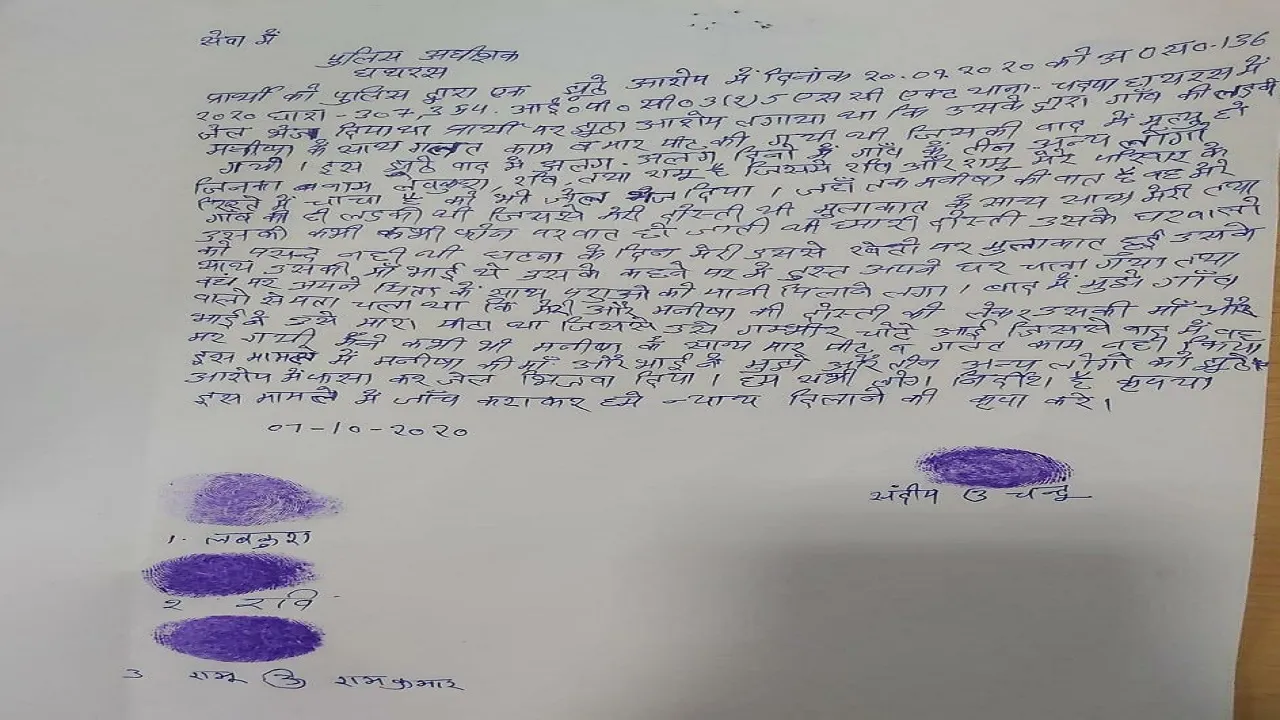 सेवा में
पुलिस अधीक्षक
हाथरस
प्रार्थी को पुलिस द्वारा एक झूठे आरोप में दिनांक २०.०९.२०२० को अ0स0-136
२०२० धारा-307,354. आई०पी०सी० 3(२)5 एस सी एक्ट थाना-चंदपा हाथरस में
जेल भेज दिया था प्रार्थी पर झूठा आरोप लगाया था कि उसके द्वारा गाँव की लडकी
मनीषा के साथ गलत काम व मार पीट की गयी थी जिसकी बाद में मृत्यु हो
गयी । इस झूठे वाद में अलग-अलग दिनों में गाँव के तीन अन्य लोगों
जिनका नाम लवकुश, रवि, तथा रामू है जिसमें रवि और रामू मेरे परिवार के
रिश्ते में चाचा है को भी जेल भेज दिया । जहाँ तक मनीषा की बात है वह मेरे
गाँव की ही लडकी थी जिससे मेरी दोस्ती थी मुलाकात के साथ साथ मेरी तथा
उसकी कभी कभी फोन पर बात हो जाती थी हमारी दोस्ती उसके घरवालो
को पसन्द नही थी घटना के दिन मेरी उससे खेतो पर मुलाकात हुई उसके
साथ उसकी माँ भाई थे उसके कहने पर में तुरन्त अपने घर चला गया तथा
घर पर अपने पिता के साथ पशुओ को पानी पिलाने लगा । बाद में मुझे गाँव
वालो से पता चला था कि मेरी और मनीषा की दोस्ती को लेकर उसकी माँ और
भाई ने उसे मारा पीटा था जिससे उसे गम्भीर चोटे आई जिससे बाद में वह
मर गयी मैंने कभी भी मनीषा के साथ मार पीट व गलत काम नही किया
इस मामले में मनीषा की माँ और भाई ने मुझे और तीन अन्य लोगो को झूठे
आरोप में फसा कर जेल भिजवा दिया । हम सभी लोग निर्दोष है कृपया
इस मामले में जाँच कराकर हमे न्याय दिलाने की कृपा करे ।
०७-१०-२०२०
संदीप उ चन्दू
1. लवकुश
२ रवि
3 रामू उ रामकुमार